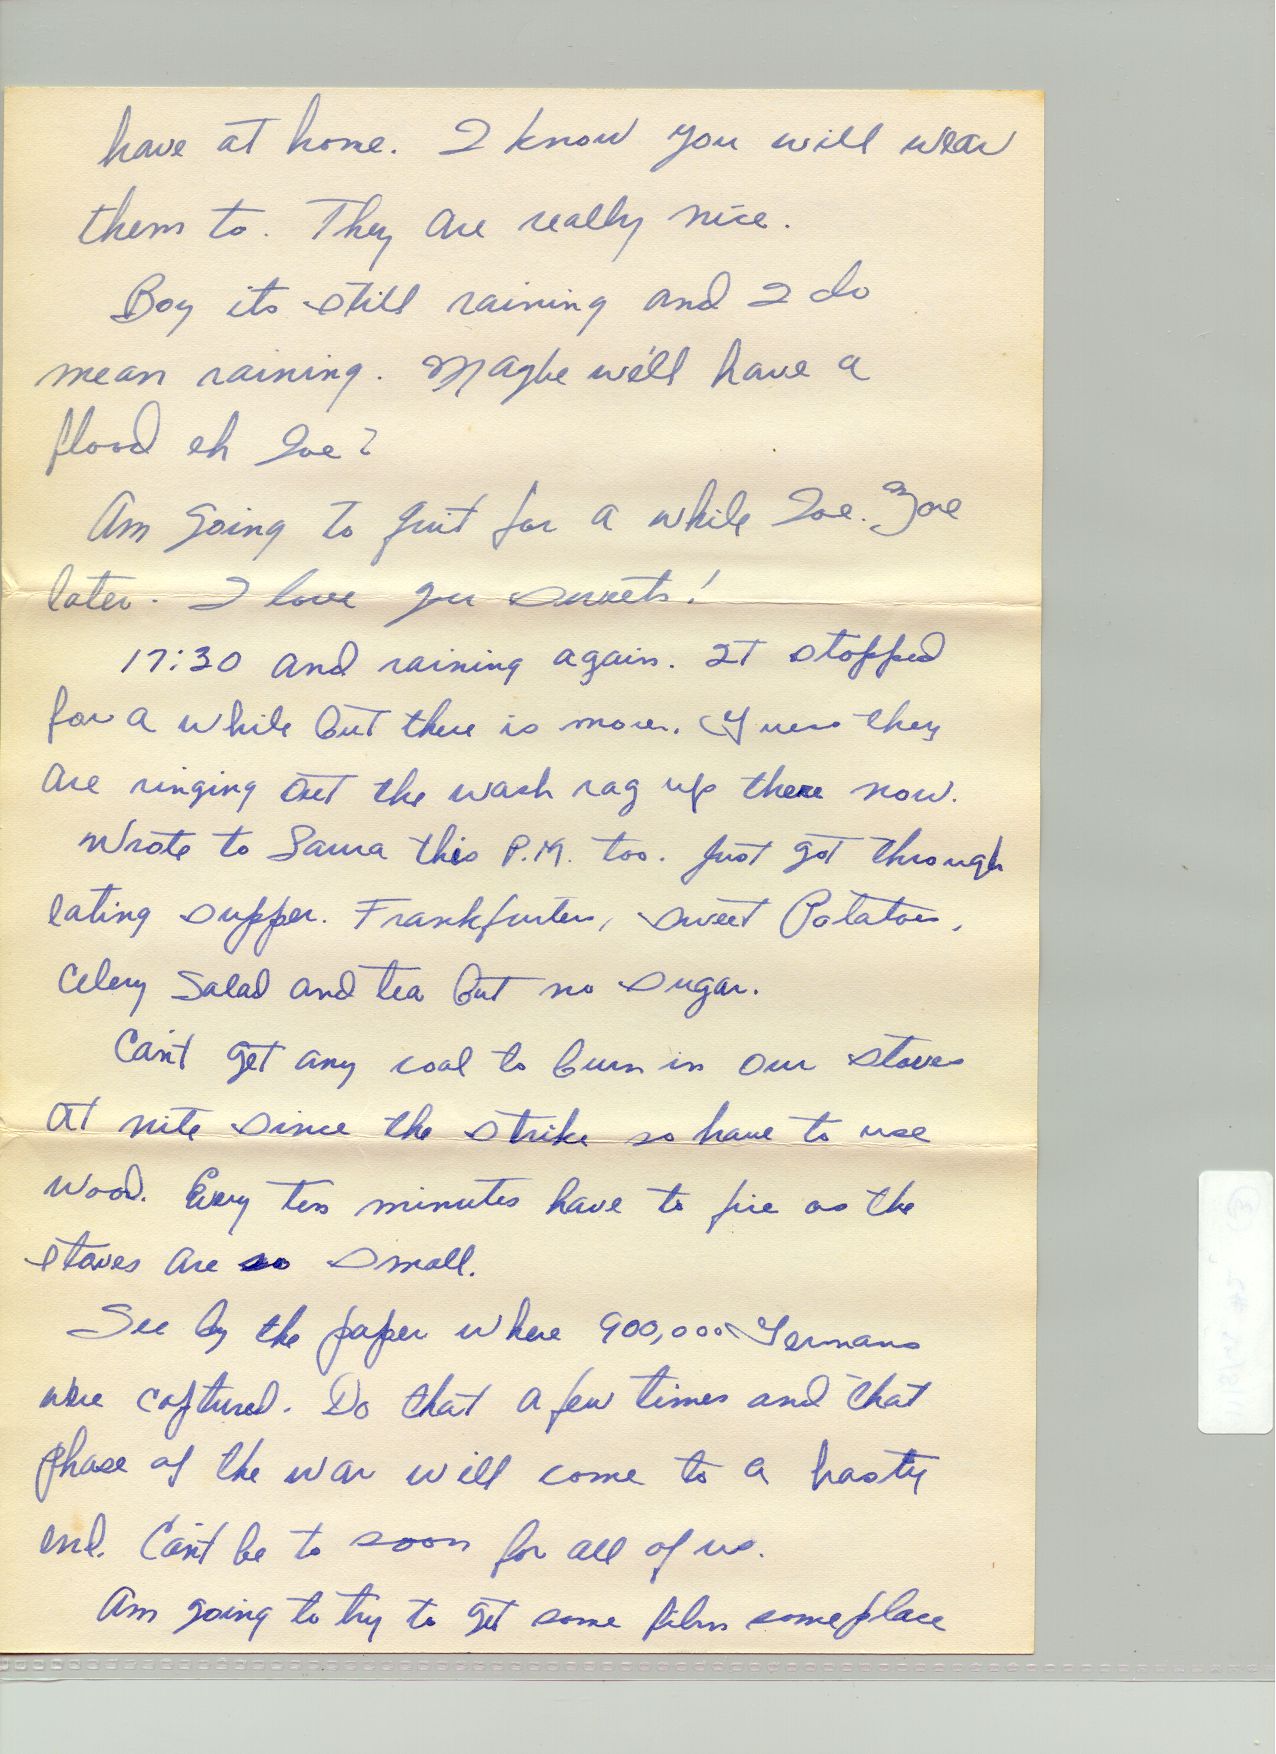 have at home. I know you will wear
them to. They are really nice.
Boy its still raining and I do
mean raining. Maybe we'll have a
flood eh Zoe?
Am going to quit for a while Zoe. More
later. I love you sweets!
17:30 and raining again. It stopped
for a while but there is more. Guess they
are ringing out the wash rag up there now.
Wrote to Laura this P.M. too. Just got through
eating supper. Frankfurters, sweet Potatoes,
Celery Salad and tea but no sugar.
Can't get any coal to burn in our stoves
at nite since the strike so have to use
wood. Every ten minutes have to fire as the
stoves are so small.
See by the paper where 900,000 Germans
were captured. Do that a few times and that
phase of the war will come to a hasty
end. Can't be to soon for all of us.
Am going to try to get some film someplace